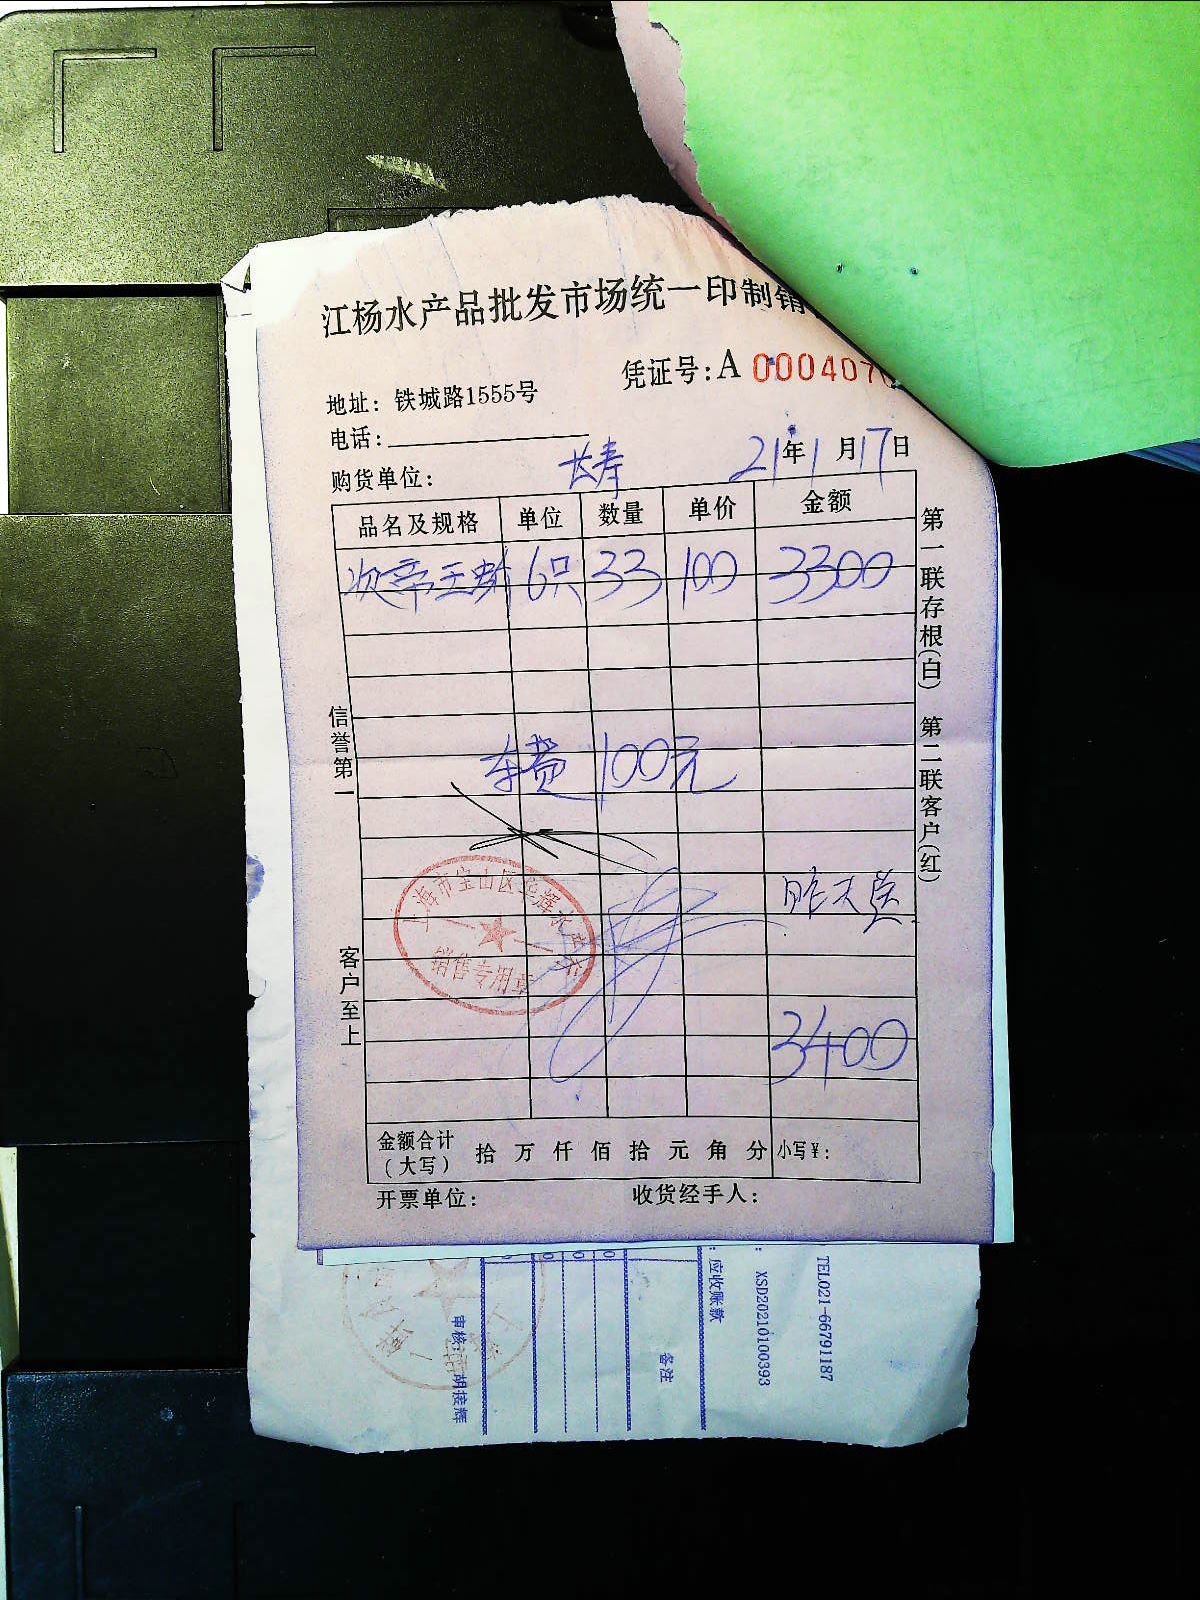 江杨水产品批发市场统一印制销
凭证号:A 000407
地址: 铁城路1555号
电话:
购货单位: 长寿 21年1月17日
品名及规格 单位 数量 单价 金额
次帝王蟹 6只 33 100 3300
车费 100元
昨天货
3400
金额合计(大写) 拾 万 仟 佰 拾 元 角 分 小写¥:
开票单位: 收货经手人:
信誉第一 客户至上
第一联存根(白) 第二联客户(红)
上海市宝山区华辉水产
销售专用章
TEL021-66791187
XSD20210100393
应收账款
备注
审核: 胡接辉